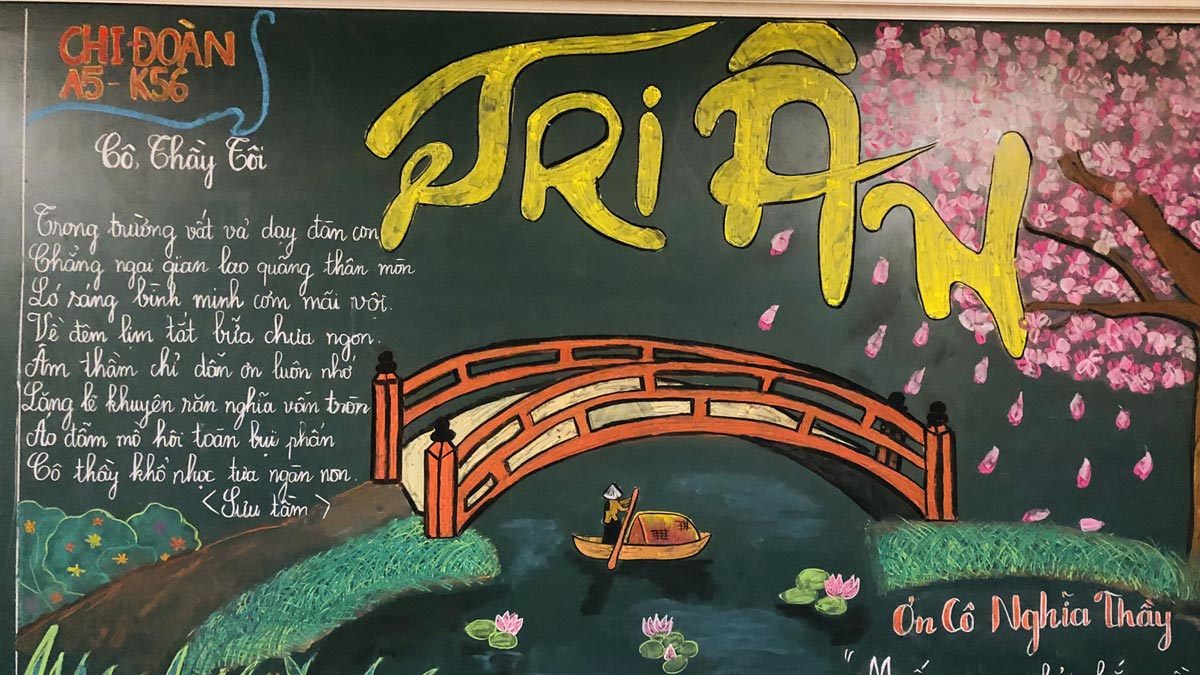 CHI ĐOÀN
A5 - K56
TRI ÂN
Cô, Thầy Tôi
Trong trường vất vả dạy đàn con
Chẳng ngại gian lao quẳng thân mòn
Ló sáng bình minh cơm mãi vội.
Về đêm lịm tắt bữa chưa ngon.
Âm thầm chỉ dẫn ơn luôn nhớ
Lặng lẽ khuyên răn nghĩa vẫn tròn
Áo đẫm mồ hôi toàn bụi phấn
Cô thầy khổ nhọc tựa ngàn non.
<Sưu tầm>
Ơn Cô Nghĩa Thầy